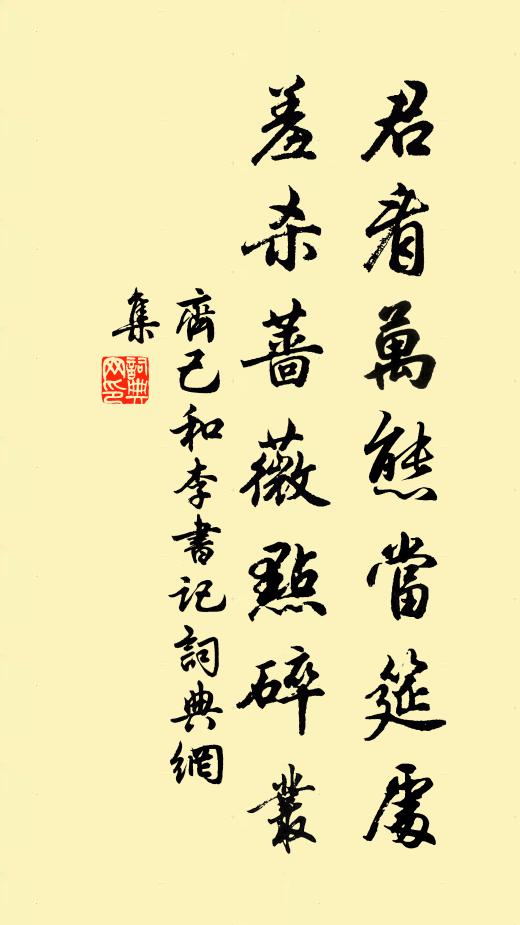 君看萬態當筵處
羞杀薔薇點碎叢
齊己和李書記詞典網
集
詞典网印